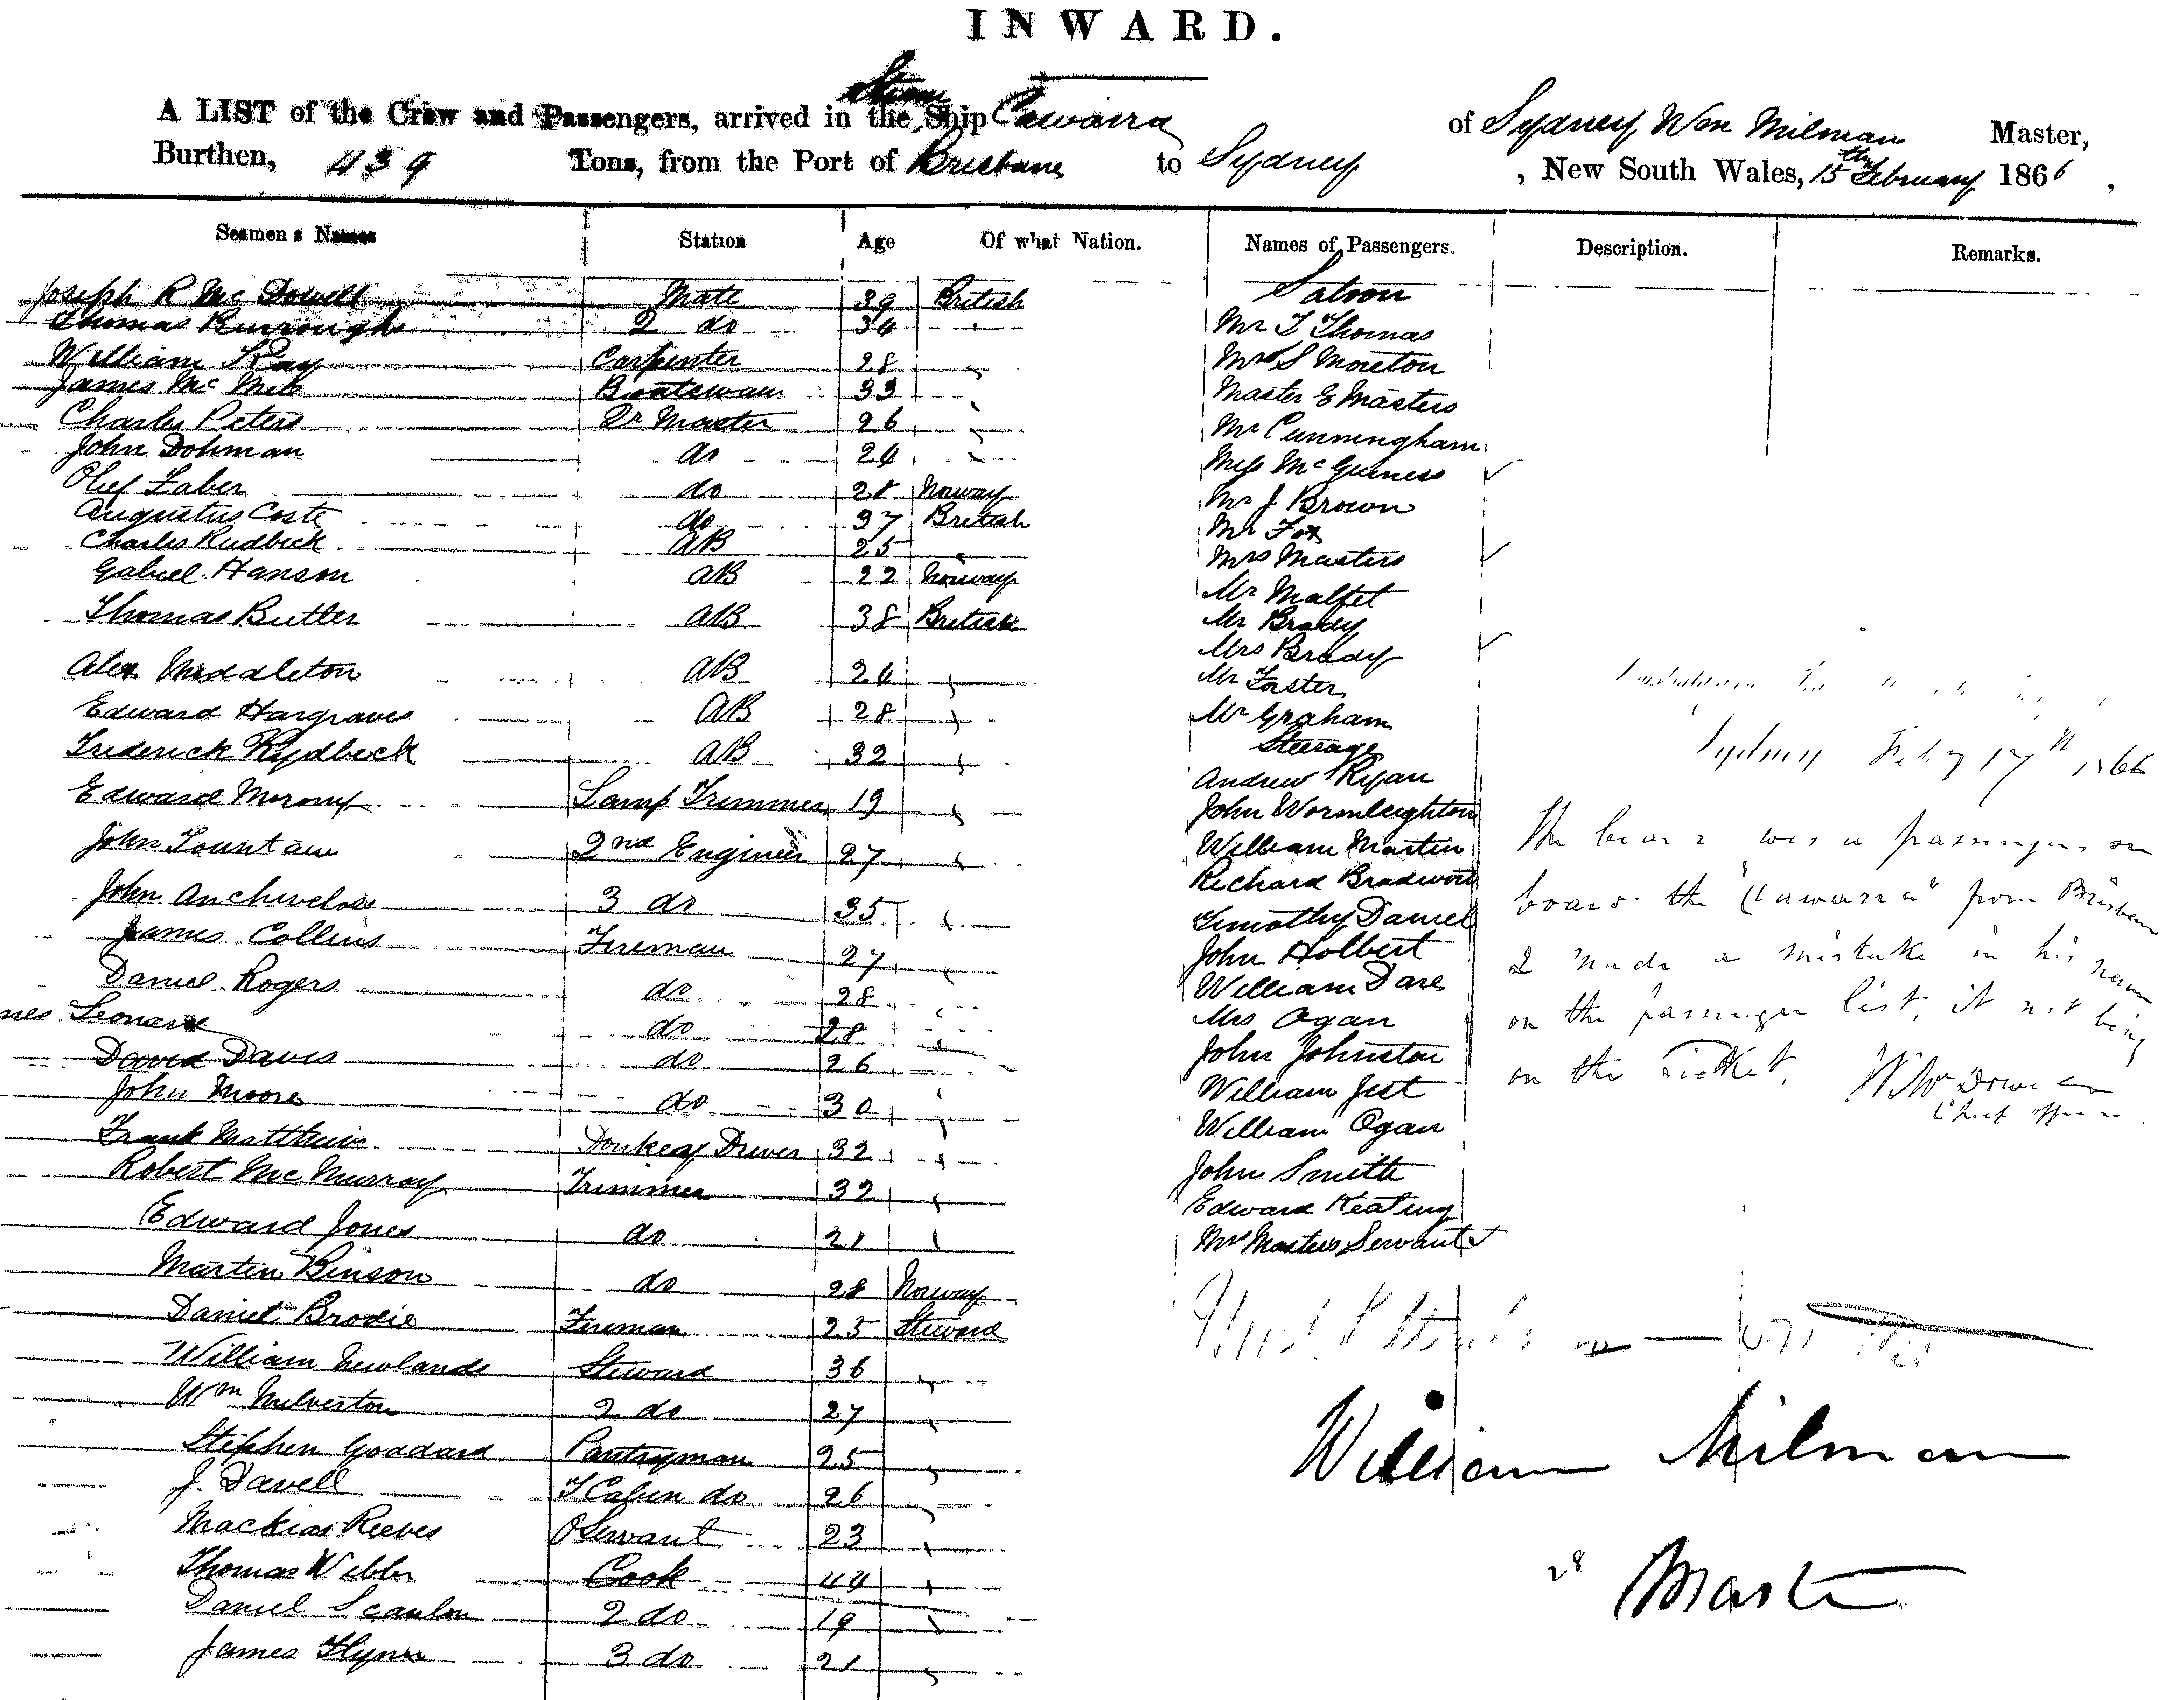 INWARD.
A LIST of the Crew and Passengers, arrived in the Steam Ship Cawarra of Sydney, Wm Milman Master,
Burthen, 439 Tons, from the Port of Brisbane to Sydney, New South Wales, 15th February 1866,
Seamens Names Station Age Of what Nation. Names of Passengers. Description. Remarks.
Joseph R McDowell Mate 39 British Saloon
Thomas Burrough 2 do 34 Mr T Thomas
William Kay Carpenter 28 Mrs S Moreton
James Mc Boatswain 33 Master E Masters
Charles Peters Qr Master 26 Mr Cunningham
John Dohman do 24 Miss McGuiness
Olef Faber do 28 Norway Mr J Brown
Augustus Coste do 37 British Mr Fox
Charles Rudbick AB 25 Mrs Masters
Gabriel Hanson AB 22 Norway Mr Malfet
Thomas Butler AB 38 British Mr Brady
Mrs Brady
Alex Middleton AB 24 Mr Foster
Edward Hargraves AB 28 Mr Graham
Frederick Rydbeck AB 32 Steerage
Andrew Ryan
Edward Lamp Trimmer 19 John Wormleighton
John Fountain 2nd Engineer 27 William Martin
Richard
John 3 do 35 Timothy Daniel
James Collins Fireman 27 John Holbert
Daniel Rogers do 28 William Dare
Leonard do 28 Mrs Ogan
David Davis do 26 John Johnston
John Moore do 30 William Jest
Frank Matthews Donkey Driver 32 William Ogan
Robert McMurray Trimmer 32 John Smith
Edward Jones do 21 Edward Keating
Mrs Masters Servant
Martin Binson do 28 Norway
Daniel Brodie Fireman 25 Steward
William Newlands Steward 36
Wm Mulverton 2 do 27
Stephen Goddard Pantryman 25
J. Davell F Cabin do 26
Reeves Servant 23
Thomas Webber Cook 44
Daniel Scanlon 2 do 19
James Flynn 3 do 21
Sydney Feby 17th 1866
The bearer was a passenger on
board the "Cawarra" from Brisbane
I made a mistake in his name
on the passenger list, it not being
on the ticket.
Chief Officer
William Milman
28
Master